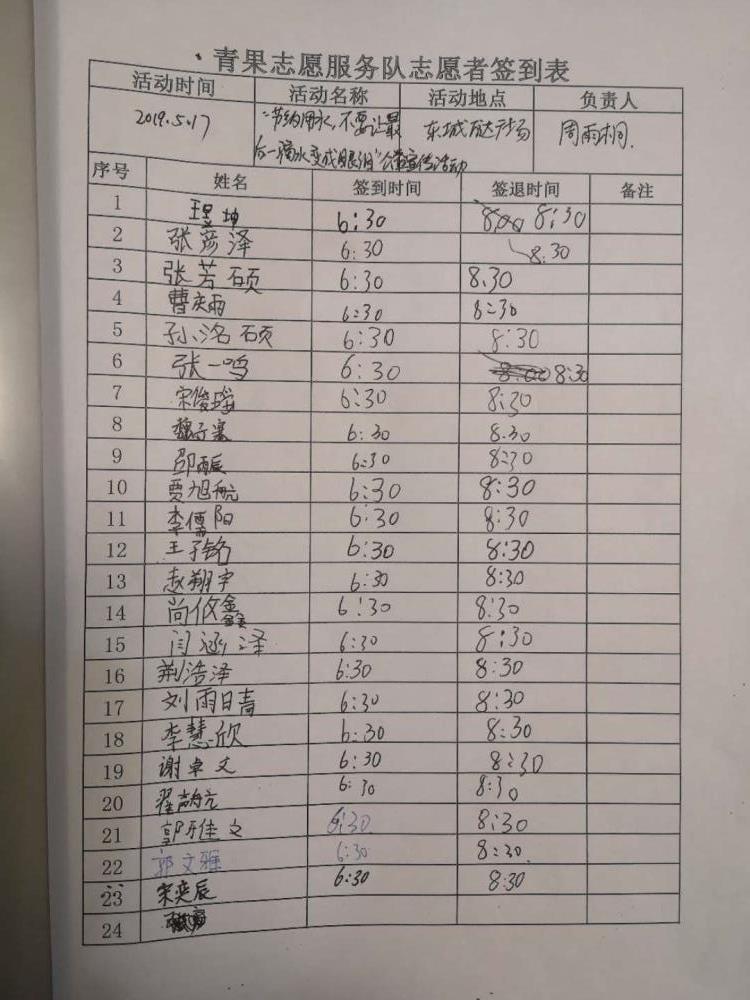 青果志愿服务队志愿者签到表
活动时间 活动名称 活动地点 负责人
2019.5.17 "节约用水,不要让最 东城 广场 周雨桐.
后一滴水变成眼泪"公益宣传活动
序号 姓名 签到时间 签退时间 备注
1 王昱坤 6:30 8:00 8:30
2 张彦泽 6:30 8:30
3 张芳硕 6:30 8.30
4 曹庆雨 6:30 8:30
5 孙洺硕 6:30 8:30
6 张一鸣 6:30 8:00 8:30
7 宋俊 6:30 8:30
8 魏子 6:30 8.30
9 邵雨辰 6:30 8:30
10 贾旭航 6:30 8:30
11 李儒阳 6:30 8:30
12 王子铭 6:30 8:30
13 赵翔宇 6:30 8:30
14 尚攸鑫 6:30 8:30
15 闫涵泽 6:30 8:30
16 荆浩泽 6:30 8:30
17 刘雨晴 6:30 8:30
18 李慧欣 6:30 8:30
19 谢卓文 6:30 8:30
20 翟 6:30 8:30
21 郭雅文 6:30 8:30
22 郭文雅 6:30 8:30
23 宋奕辰 6:30 8:30
24